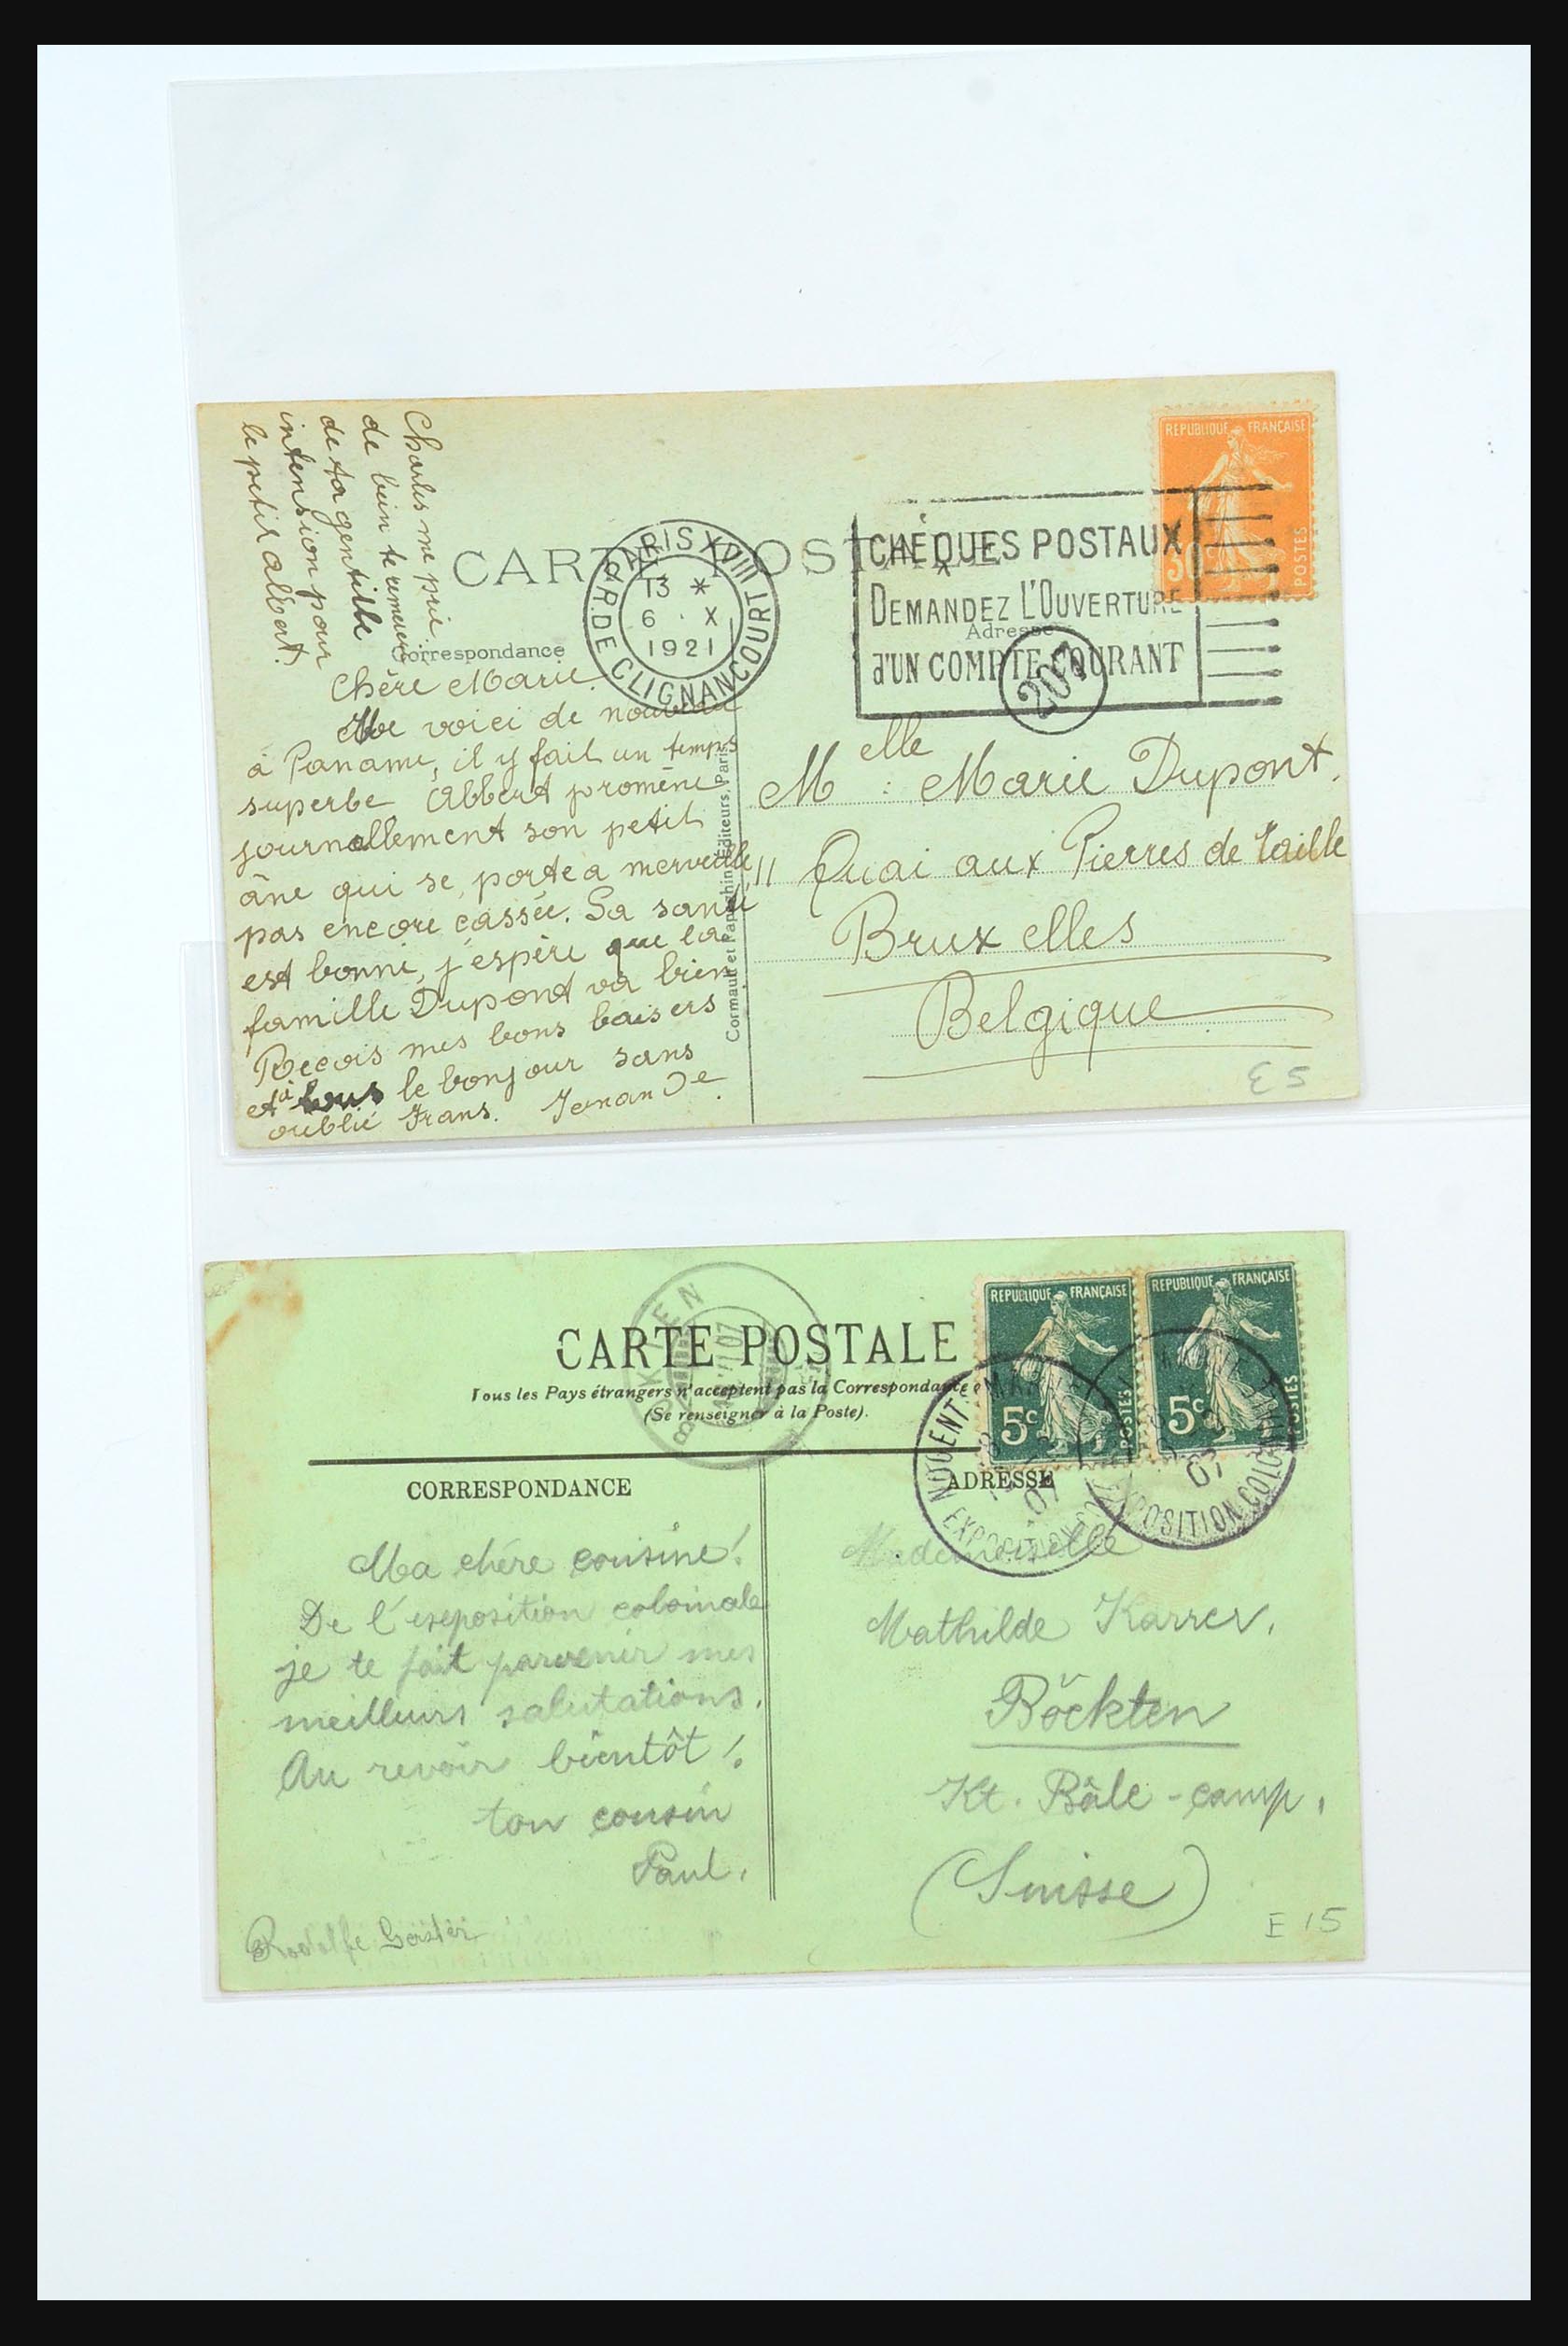 Charles me prie
de bien te remercier
de ta gentille
intension pour
le petit albert.
CARTE POSTALE
Correspondance
Adresse
PARIS XVIII
R. DE CLIGNANCOURT
13 *
6 · X
1921
CHÈQUES POSTAUX
DEMANDEZ L'OUVERTURE
d'UN COMPTE COURANT
REPUBLIQUE FRANÇAISE
30
POSTES
Chère Marie.
Me voici de nouveau
à Paname, il y fait un temps
superbe Albert promène
journellement son petit
âne qui se porte a merveille,
pas encore cassée. Sa santé
est bonne, j'espère que la
famille Dupont va bien
Recois mes bons baisers
et à tous le bonjour sans
oublié Frans. Fernande.
Cormault et Papeghin, Éditeurs, Paris
Melle Marie Dupont.
11 Quai aux Pierres de Taille
Bruxelles
Belgique
E 5
CARTE POSTALE
Tous les Pays étrangers n'acceptent pas la Correspondance
(Se renseigner à la Poste).
CORRESPONDANCE
ADRESSE
REPUBLIQUE FRANÇAISE
5c
POSTES
REPUBLIQUE FRANÇAISE
5c
POSTES
NOGENT
EXPOSITION
07
EXPOSITION COLONIALE
07
Ma chére cousine!
De l'exposition coloniale
je te fait parvenir mes
meilleurs salutations.
Au revoir bientôt!
ton cousin
Paul.
Rodolfe
Mademoiselle
Mathilde Karrer,
Böckten
Kt. Bâle-camp,
(Suisse)
E 15